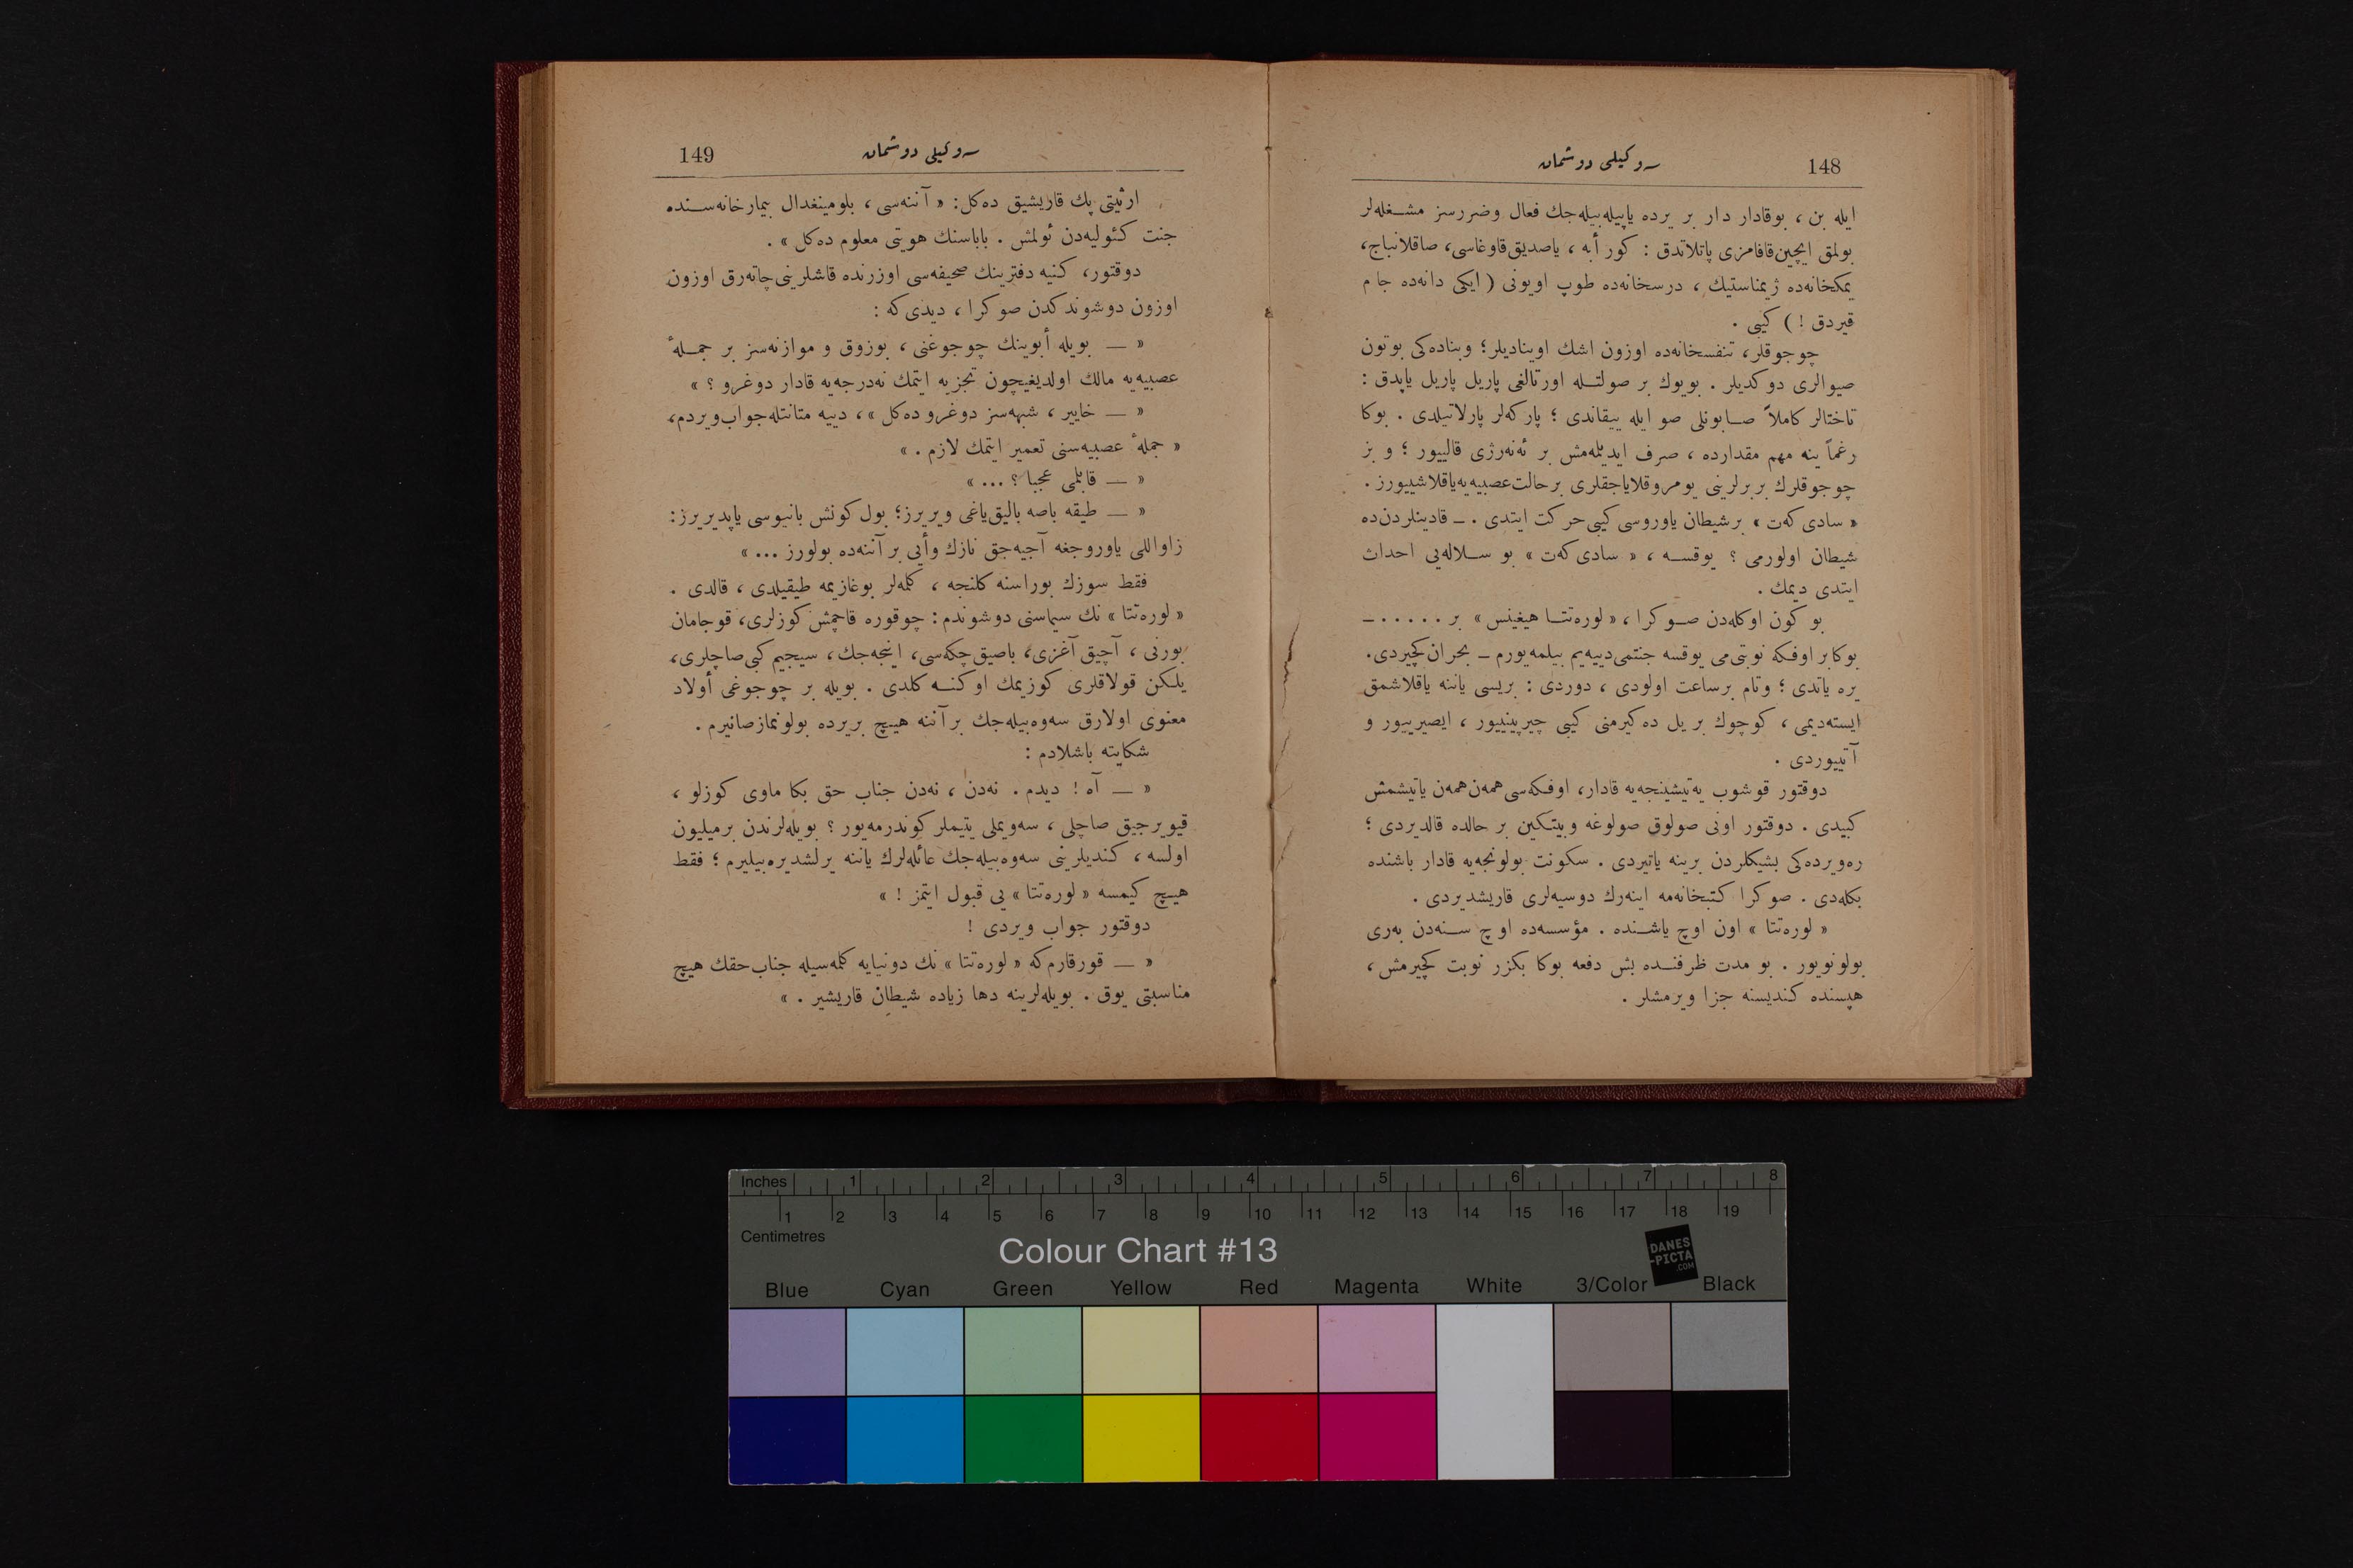 148
سوكيلی دوشمان
ايله بن ، بوقادار دار بر يرده ياپيله بيله جك فعال وضررسز مشغله لر
بولمق ايچين قافامزی پاتلاتدق : كور أبه ، ياصديق قاوغاسی ، صاقلانباج ،
يمكخانه ده ژيمناستيك ، درسخانه ده طوپ اويونی ( ايكی دانه ده جام
قيردق ! ) كيبی .
چوجوقلر ، تنفسخانه ده اوزون اشك اوينايديلر ؛ وبناده كی بوتون
صيوالری دوكديلر . بويوك بر صولتله اورتالغی پاريل پاريل ياپدق :
تاختالر كاملاً صابونلی صو ايله ييقاندی ؛ پاركه لر پارلاتيلدی . بوكا
رغماً ينه مهم مقدارده ، صرف ايديلمه مش بر ئه نه رژی قاليیور ؛ و بز
چوجوقلرك بربرلرينی يومروقلاياجقلری برحالت عصبيه يه ياقلاشييورز .
« سادی كه ت » برشيطان ياوروسی كيبی حركت ايتدی . ــ قادينلردن ده
شيطان اولورمی ؟ يوقسه ، « سادی كه ت » بو سلاله يی احداث
ايتدی ديمك .
بو كون اوكله دن صوكرا ، « لوره تتا هيغينس » بر ٠٠٠٠٠ ــ
بوكا بر اوفكه نوبتی می يوقسه جنتمی دييه يم بيلمه يورم ــ بحران كچيردی .
يره ياتدی ؛ وتام برساعت اولودی ، دوردی : بريسی ياننه ياقلاشمق
ايسته ديمی ، كوچوك بر يل ده كيرمنی كيبی چيرپينييور ، ايصيرييور و
آتييوردی .
دوقتور قوشوب يه تيشينجه يه قادار ، اوفكه سی همه ن همه ن ياتيشمش
كبيدی . دوقتور اونی صولوق صولوغه و بيتكين بر حالده قالديردی ؛
ره ويرده كی بشيكلردن برينه ياتيردی . سكونت بولونجه يه قادار باشنده
بكله دی . صوكرا كتبخانه مه اينه رك دوسيه لری قاريشديردی .
« لوره تتا » اون اوچ ياشنده . مؤسسه ده اوچ سنه دن به ری
بولونويور . بو مدت ظرفنده بش دفعه بوكا بكزر نوبت كچيرمش ،
هپسنده كنديسنه جزا ويرمشلر .
149
سوكيلی دوشمان
ارثيتی پك قاريشيق ده كل : « آننه سی ، بلومينغدال بيمارخانه سنده
جنت كئوليه دن ئولمش . باباسنك هويتی معلوم ده كل » .
دوقتور ، كنيه دفترينك صحيفه سی اوزرنده قاشلرينی چاته رق اوزون
اوزون دوشوندكدن صوكرا ، ديدی كه :
« ــ بويله أبوينك چوجوغنی ، بوزوق و موازنه سز بر جملۀ
عصبيه يه مالك اولديغيچون تجزيه ايتمك نه درجه يه قادار دوغرو ؟ »
« ــ خايير ، شبهه سز دوغرو ده كل » ، دييه متانتله جواب ويردم ،
« جملۀ عصبيه سنی تعمير ايتمك لازم . »
« ــ قابلمی عجبا ؟ ... »
« ــ طيقه باصه باليق ياغی ويريرز ؛ بول كونش بانيوسی ياپديريرز :
زاواللی ياوروجغه آجيه جق نازك وأیی بر آننه ده بولورز ... »
فقط سوزك بوراسنه كلنجه ، كلمه لر بوغازيمه طيقيلدی ، قالدی .
« لوره تتا » نك سيماسنی دوشوندم : چوقوره قاچمش كوزلری ، قوجامان
بورنی ، آچيق آغزی ، باصيق چكه سی ، اينجه جك ، سيجيم كبی صاچلری ،
يلكن قولاقلری كوزيمك اوكنه كلدی . بويله بر چوجوغی أولاد
معنوی اولارق سه وه بيله جك برآننه هيچ بريرده بولونمازصانيرم .
شكايته باشلادم :
« ــ آه ! ديدم . نه دن ، نه دن جناب حق بكا ماوی كوزلو ،
قيويرجيق صاچلی ، سه ويملی يتيملر كوندرمه يور ؟ بويله لرندن برميليون
اولسه ، كنديلرينی سه وه بيله جك عائله لرك ياننه يرلشديره بيليرم ؛ فقط
هيچ كيمسه « لوره تتا » يی قبول ايتمز ! »
دوقتور جواب ويردی !
« ــ قورقارم كه « لوره تتا » نك دونيايه كلمه سيله جناب حقك هيچ
مناسبتی يوق . بويله لرينه دها زياده شيطان قاريشير . »
Inches 1 2 3 4 5 6 7 8
1 2 3 4 5 6 7 8 9 10 11 12 13 14 15 16 17 18 19
Centimetres
Colour Chart #13
DANES
-PICTA
.COM
Blue Cyan Green Yellow Red Magenta White 3/Color Black